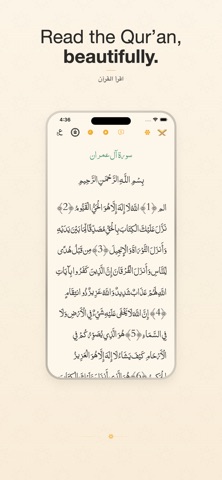 Read the Qur’an,
beautifully.
اقرأ القرآن
4:36
سورة آل عمران
بِسْمِ اللَّهِ الرَّحْمَٰنِ الرَّحِيمِ
الم ﴿1﴾ اللَّهُ لَا إِلَٰهَ إِلَّا هُوَ الْحَيُّ الْقَيُّومُ ﴿2﴾
نَزَّلَ عَلَيْكَ الْكِتَابَ بِالْحَقِّ مُصَدِّقًا لِّمَا بَيْنَ يَدَيْهِ
وَأَنزَلَ التَّوْرَاةَ وَالْإِنجِيلَ ﴿3﴾ مِن قَبْلُ هُدًى
لِّلنَّاسِ وَأَنزَلَ الْفُرْقَانَ إِنَّ الَّذِينَ كَفَرُوا بِآيَاتِ
اللَّهِ لَهُمْ عَذَابٌ شَدِيدٌ وَاللَّهُ عَزِيزٌ ذُو انتِقَامٍ
﴿4﴾ إِنَّ اللَّهَ لَا يَخْفَىٰ عَلَيْهِ شَيْءٌ فِي الْأَرْضِ وَلَا
فِي السَّمَاءِ ﴿5﴾ هُوَ الَّذِي يُصَوِّرُكُمْ فِي
الْأَرْحَامِ كَيْفَ يَشَاءُ لَا إِلَٰهَ إِلَّا هُوَ الْعَزِيزُ